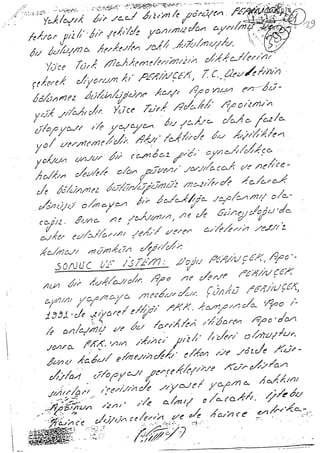 Yaklaşık bir saat bizimle görüşen PERİNÇEK,
tekrar gizli bir şekilde yanımızdan ayrılmış ve
bu buluşma herkesten saklı tutulmuştu.
Yüce Türk Mahkemelerimizin dikkatlerini
çekerek diyorum ki PERİNÇEK, T.C. Devletinin
bölünmez bütünlüğüne karşı Aponun en bü-
yük silahıdır. Yüce Türk Adaleti Apoizmin
ütopyası ile yaşayan bu şahsa daha fazla
yol vermemelidir. Aksi taktirde bu kişilikten
yoksun unsur bir cambaz gibi oynatıldıkça
halkın devlete olan güveni sarsılacak ve netice-
de bölünmez bütünlüğümüz mazilerde kalarak
dönüşü olmayan bir bataklığa saplanmış ola-
cağız. Buna ne şahsımın, ne de Güneydoğu'da
asker evlatlarını şehit veren ailelerin sessiz
kalması mümkün değildir.
SONUÇ VE İSTEM: Doğu PERİNÇEK, Apo-
nun bir kuklasıdır. Apo ne derse PERİNÇEK
aynını yapmaya mecburdur. Çünkü PERİNÇEK,
1991-de ziyaret ettiği PKK kampında Apo i-
le anlaşmış ve bu tarihten itibaren Apo'dan
sonra PKK'nın ikinci gizli lideri olmuştur.
Bunu kabul etmesindeki etken ise sözde Kür-
distan ütopyası gerçekleşirse Kürdistan
sınırları içerisinde siyaset yapma hakkını
Aponun izni ile almış olacaktı. İşte bu
haince düşüncelerin ve de haince entrika-